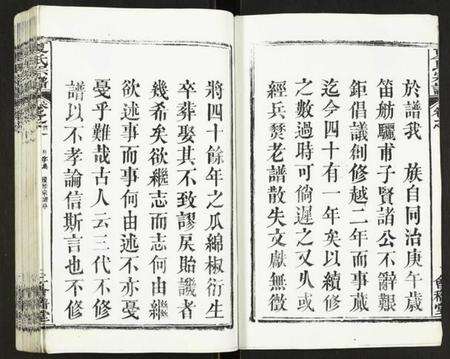 於譜我　族自同治庚午歲
笛舫驪甫子賢諸公不辭艱
鉅倡議創修越二年而事蕆
迄今四十有一年矣以續修
之數過時可倘遲之又久或
經兵燹老譜散失文獻無徵
將四十餘年之瓜綿椒衍生
卒葬娶其不致謬戾貽譏者
幾希矣欲繼志而志何由繼
欲述事而事何由述不亦憂
憂乎難哉古人云三代不修
譜以不孝論信斯言也不修